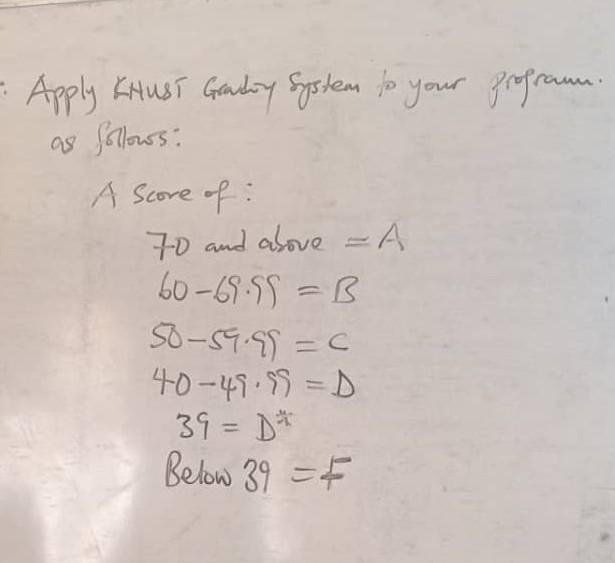 : Apply KNUST Grading System to your program.
as follows:
A Score of:
70 and above = A
60-69.99 = B
50-59.99 = C
40-49.99 = D
39 = D*
Below 39 = F